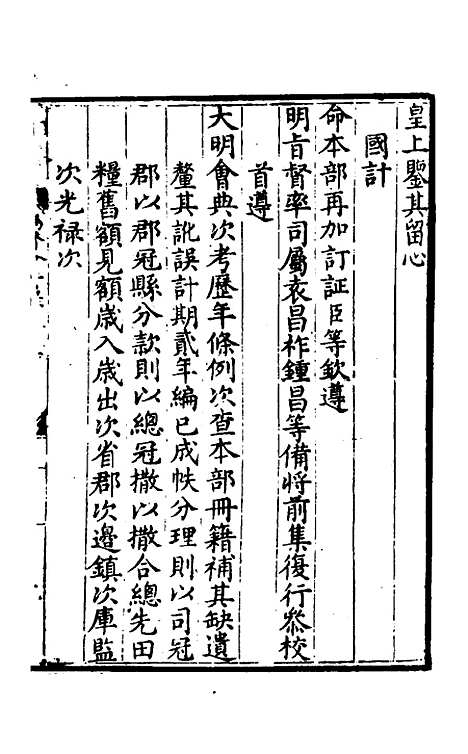 皇上鑒其留心
國計
命本部再加訂証臣等欽遵
明旨督率司屬袁昌祚鍾昌等備將前集復行叅校
首遵
大明會典次考歷年條例次查本部冊籍補其缺遺
釐其訛誤計期貳年編已成帙分理則以司冠
郡以郡冠縣分款則以總冠撒以撒合總先田
糧舊額見額歲入歲出次省郡次邊鎮次庫監
次光祿次